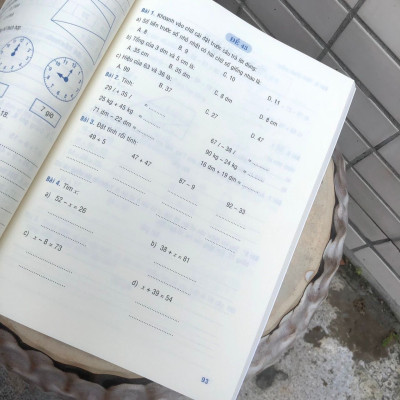 ĐỀ 43
Bài 1. Khoanh vào chữ cái đặt trước câu trả lời đúng:
a) Số liền trước số nhỏ nhất có hai chữ số giống nhau là:
A. 8 B. 9 C. 10 D. 11
b) Tổng của 3 dm và 5 cm là:
A. 35 cm B. 35 dm C. 8 cm D. 8 dm
c) Hiệu của 63 và 36 là:
A. 99 B. 37 C. 27 D. 47
Bài 2. Tính
29 l + 35 l = 67 l – 38 l =
26 kg + 45 kg = 90 kg – 24 kg =
71 dm – 22 dm = 18 dm + 19 dm =
Bài 3. Đặt tính rồi tính
49 + 5 47 + 47 87 – 9 92 – 33
Bài 4. Tìm x:
a) 52 – x = 26 b) 38 + x = 81
c) x – 8 = 73 d) x + 39 = 54
93
7 giờ
18.